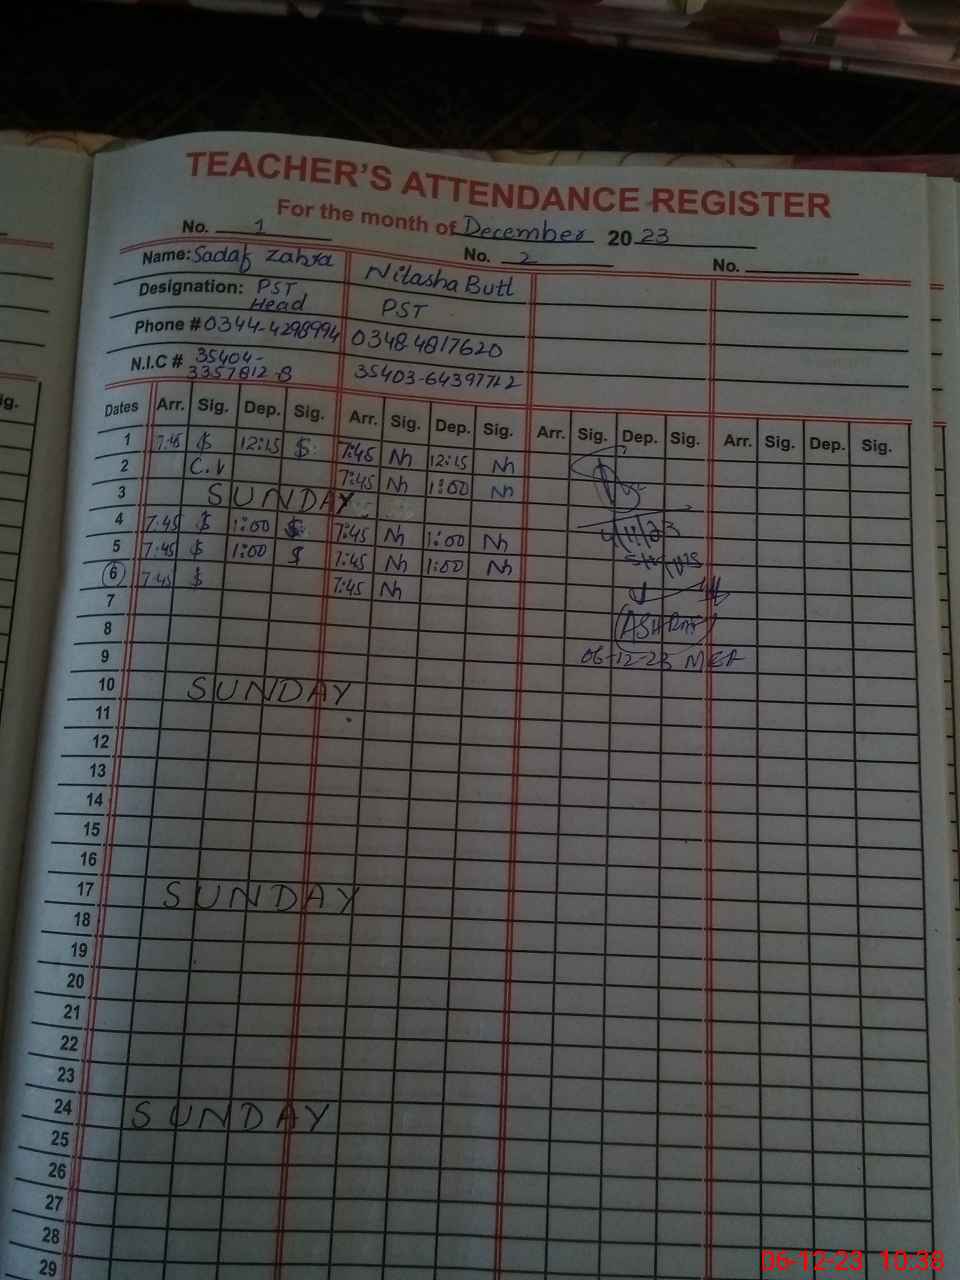 TEACHER'S ATTENDANCE REGISTER
For the month of December 2023
No. 1 No. 2 No.
Name: Sadaf Zahra Nitasha Butt
Designation: PST Head PST
Phone # 0344-4298994 0348-4817620
N.I.C # 35404-3357812-8 35403-
ig.
Dates Arr. Sig. Dep. Sig. Arr. Sig. Dep. Sig. Arr. Sig. Dep. Sig. Arr. Sig. Dep. Sig.
1 7:45 12:15 7:45 12:15
2 7:45 1:00
3 SUNDAY
4 7:45 1:00 7:45 1:00
5 7:45 1:00 7:45 1:00
6 7:45 7:45
7
8 ASHRAF
9 06-12-23 MEA
10 SUNDAY
11
12
13
14
15
16
17 SUNDAY
18
19
20
21
22
23
24 SUNDAY
25
26
27
28
29
06-12-23 10:38